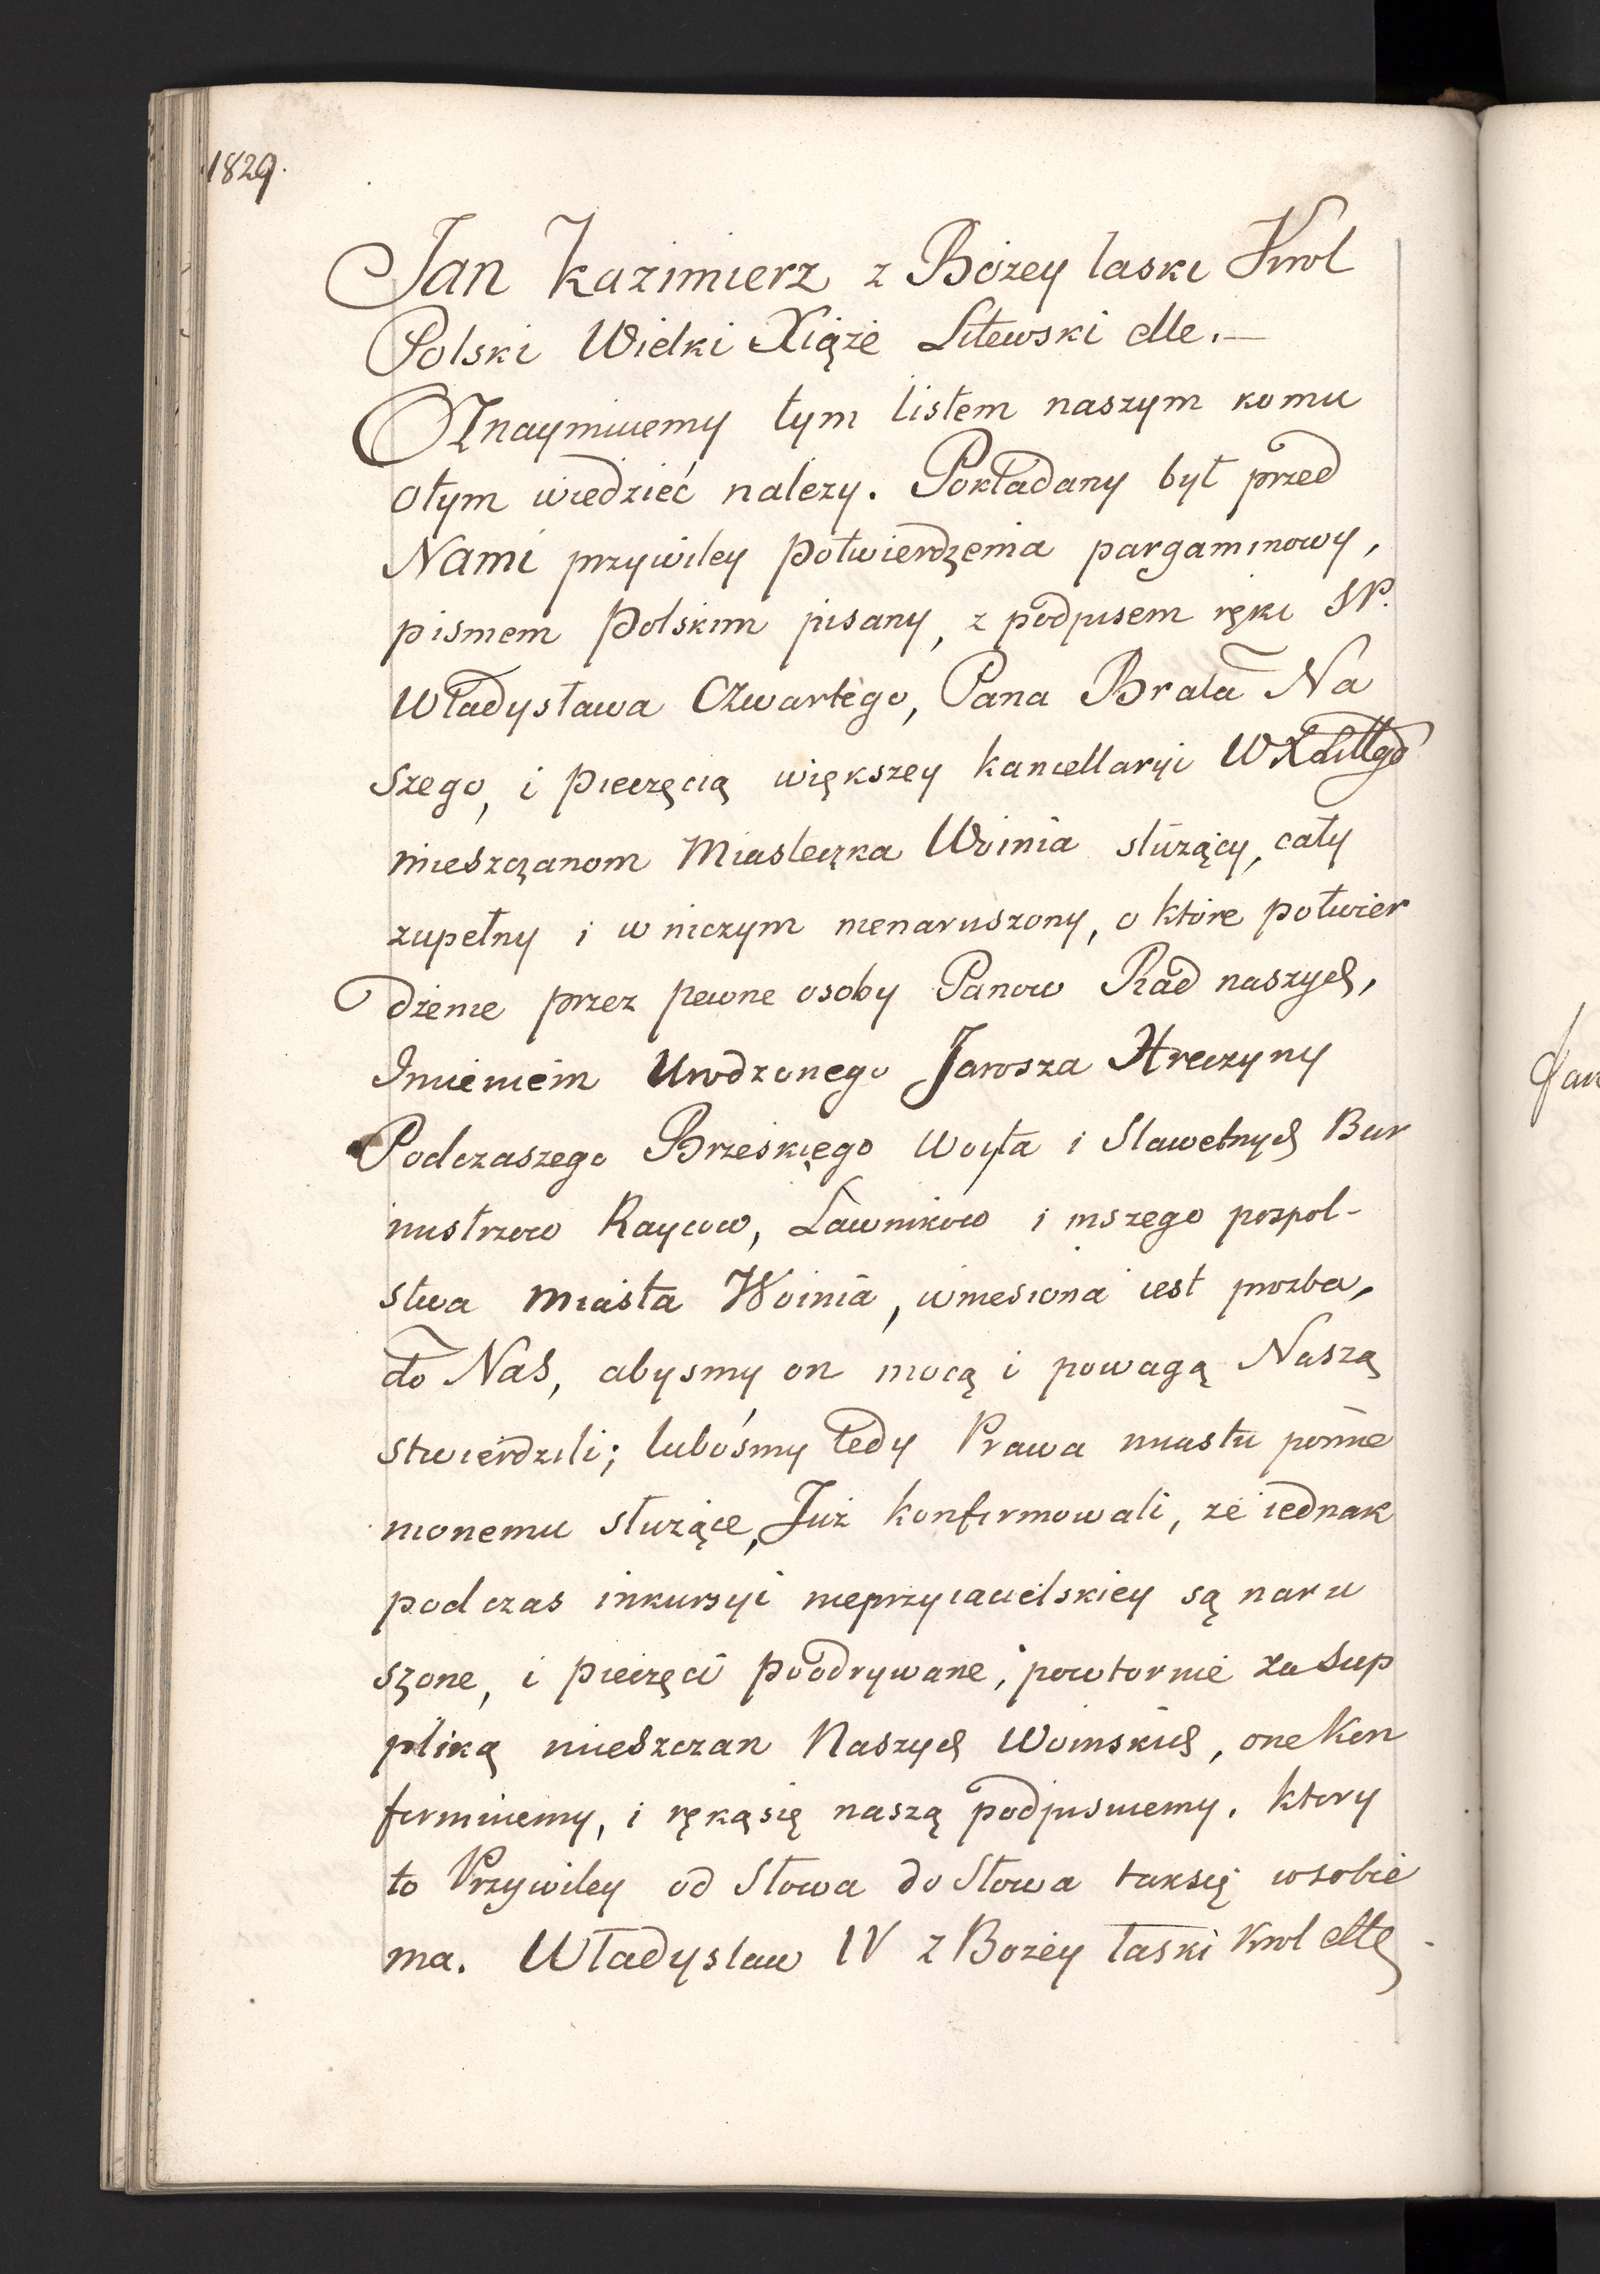 1829.
Jan Kazimierz z Bożey laski Krol
Polski Wielki Xiąże Litewski etc. —
Oznaymuiemy tym listem naszym komu
otym wiedzieć należy. Pokładany był przed
Nami przywiley potwierdzenia pargaminowy,
pismem Polskim pisany, z podpisem ręki SP.
Władysława Czwartego, Pana Brata Na
szego, i pieczęcią większey kancellaryi WXLittgo
mieszczanom Miasteczka Woinia służący, cały
zupełny i w niczym nienaruszony, o które potwier
dzenie przez pewne osoby Panow Rad naszych,
Imieniem Urodzonego Jarosza Hreczyny
Podczaszego Brzeskiego Woyta i Slawetnych Bur
mistrzow Raycow, Ławnikow i inszego pospol-
stwa miasta Woinia, wniesiona iest prozba,
do Nas, abysmy on mocą i powagą Naszą
stwierdzili; lubośmy tedy Prawa miastu pomie
nionemu służące, Już konfirmowali, że iednak
podczas inkursyi nieprzyiacielskiey są naru
szone, i pieczęci poodrywane, powtornie za sup
pliką mieszczan Naszych Woinskich, one Kon
firmuiemy, i ręką się naszą podpisuiemy. Ktory
to Przywiley od Słowa do Słowa taksię wsobie
ma. Władyslaw IV z Bożey łaski Krol etc
Jan